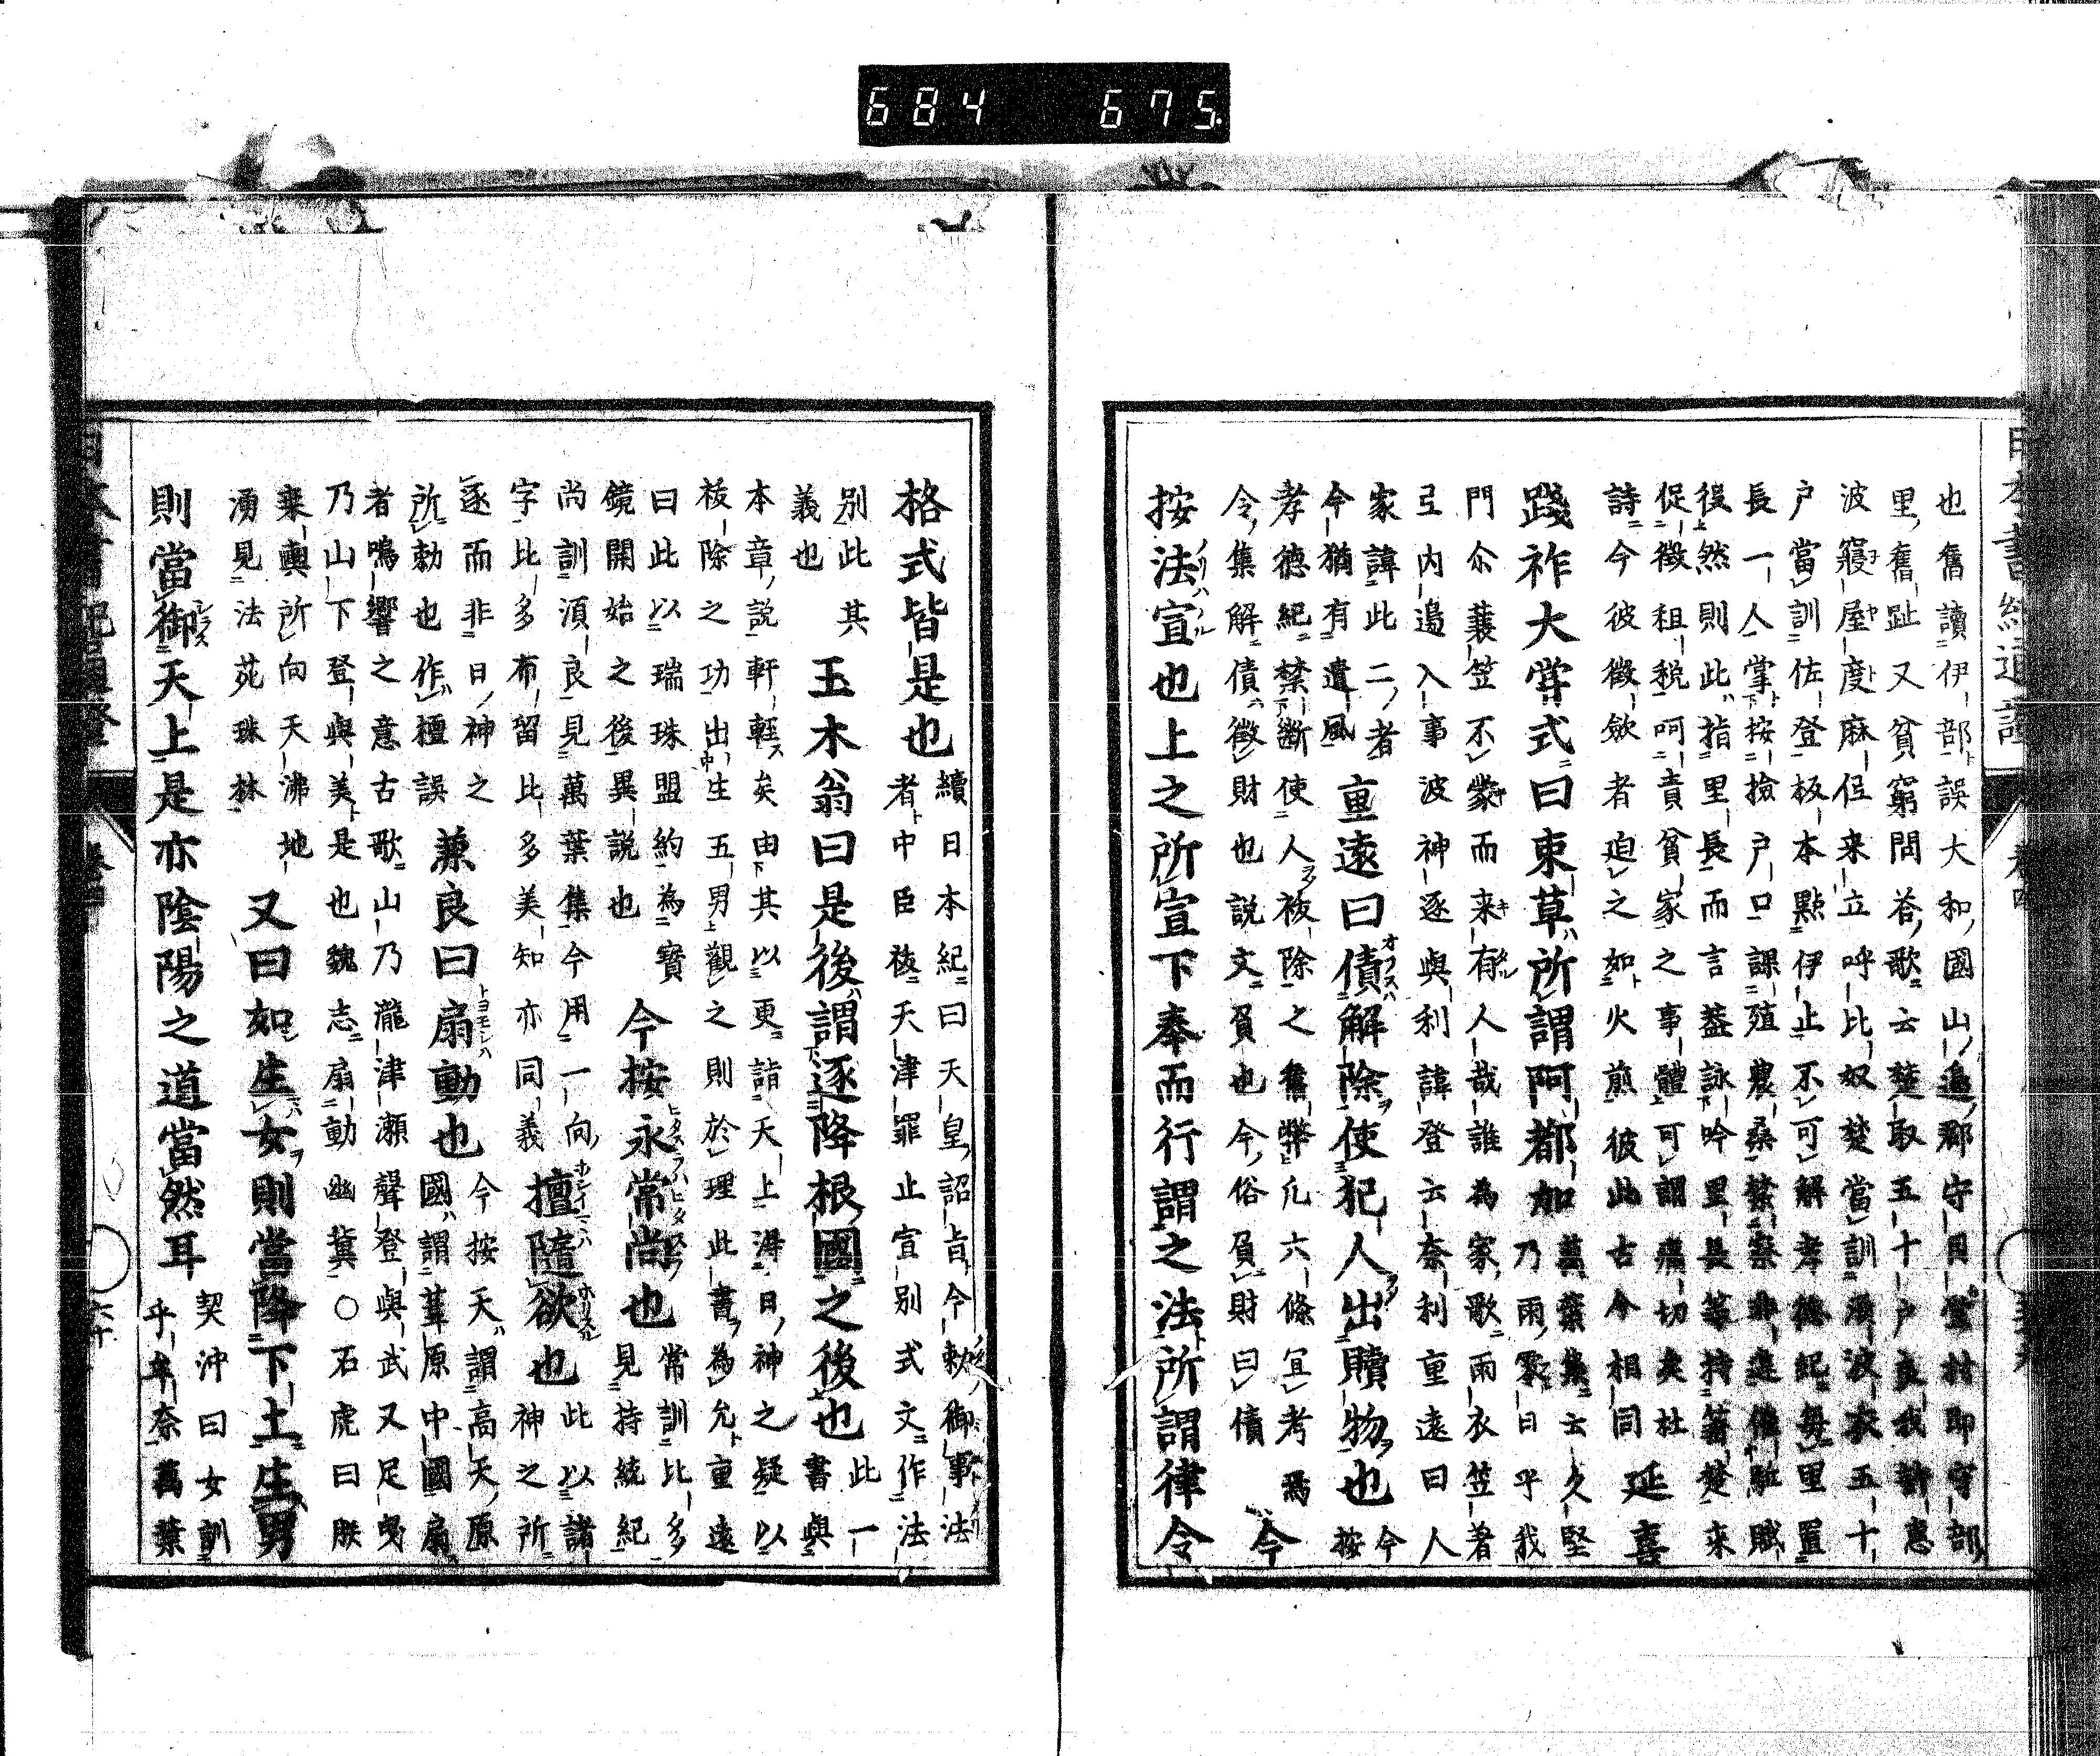 也舊讀伊部誤大和國山邉郡守目村即守部
里舊趾又貧窮問荅歌云楚取五十戸良我許惠
波寢屋度麻侶来立呼比奴楚當訓須波衣五十
戸當訓佐登板本點伊止不可解孝德紀毎里置
長一人掌按撿戸口課殖農桑禁察非違催駈賦
役然則此指里長而言葢詠吟里長等持笞楚来
促徴租税呵責貧家之事體可謂痛切矣杜
詩今彼徴斂者迫之如火煎彼此古今相同
延喜
踐祚大甞式曰束草所謂阿都加
萬葉集云久堅
乃雨零日乎我
門尒蓑笠不蒙而来有人哉誰為家歌雨衣笠著
弖内邉入事波神逐與利諱登云奈利重遠曰人
家諱此二者
今猶有遺風
重遠曰債解除使犯人出贖物也
今
按
孝德紀禁斷使人祓除之舊弊凢六條冝考焉
令集解債徴財也説文負也今俗負財曰債
今
按法宣也上之所宣下奉而行謂之法所謂律令
格式皆是也
續日本紀曰天皇詔旨今勅御事法
者中臣祓天津罪止宣别式文作法
别此其
義也
玉木翁曰是後謂逐降根國之後也
此一
書與
本章説軒輊矣由其以更詣天上淂日神之疑以
祓除之功出生五男觀之則於理此書為允重遠
曰此以瑞珠盟約為寳
鏡開始之後異説也
今按永常尚也
常訓比多
見持統紀
尚訓湏良見萬葉集今用一向
字比多布留比多美知亦同義
擅隨欲也
此以諸
神之所
逐而非日神之
所勅也作檀誤
兼良曰扇動也
今按天謂高天原
國謂葦原中國扇
者鳴響之意古歌山乃瀧津瀬聲登與武又足曳
乃山下登與美是也魏志扇動幽冀○石虎曰朕
乗輿所向天沸地
湧見法苑珠林
又曰如生女則當降下土生男
則當御天上是亦陰陽之道當然耳
契沖曰女訓
乎牟奈萬葉
684 675